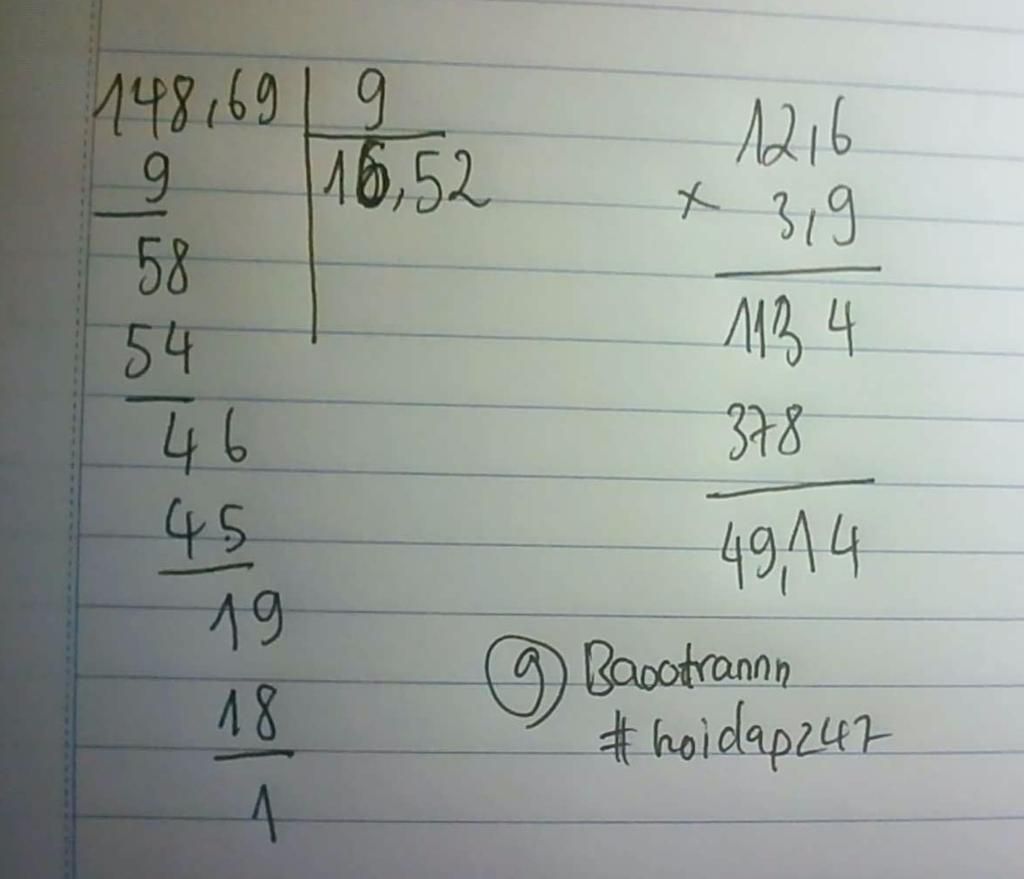 148,69 9
9 16,52
58
54
46
45
19
18
1
12,6
× 3,9
113 4
378
49,14
9 Baootrannn
#hoidap247